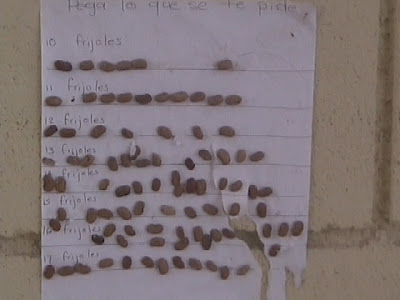 Pega lo que se te pide
10 frijoles
11 frijoles
12 frijoles
13 frijoles
14 frijoles
15 frijoles
16 frijoles
17 frijoles